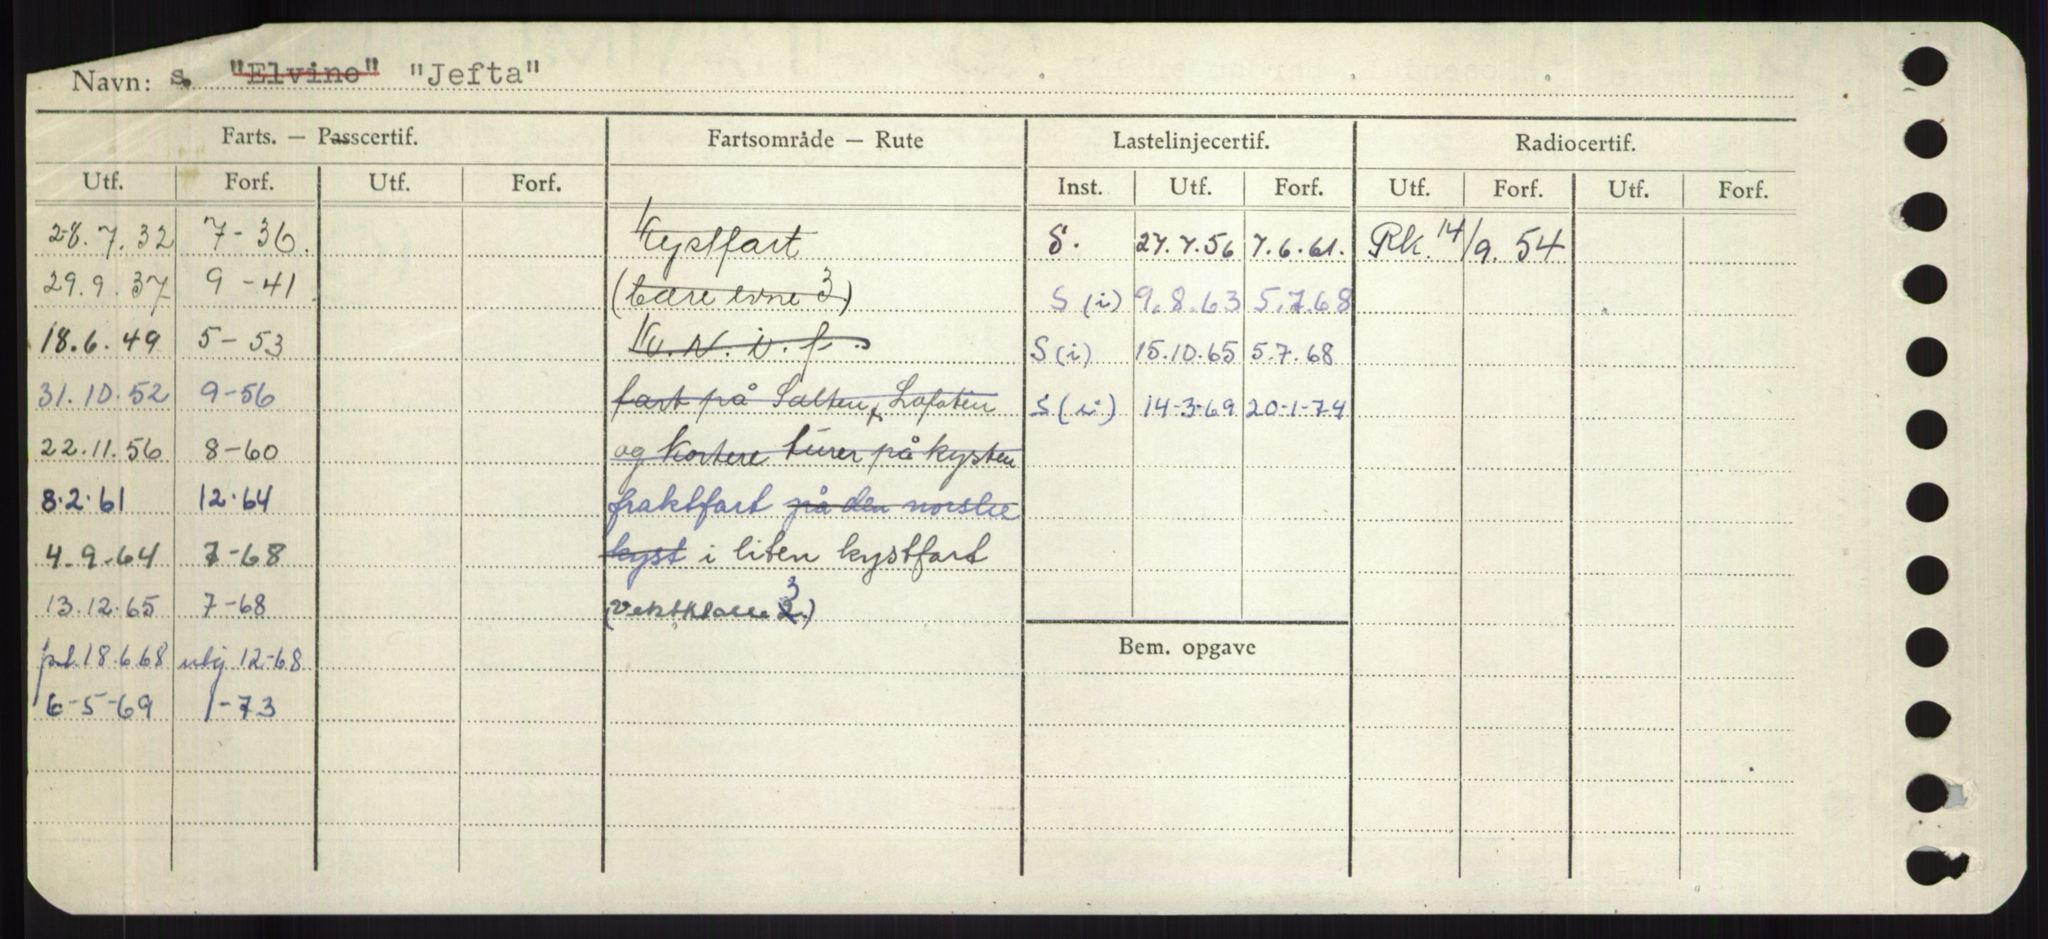 Navn: s. "Elvino" "Jefta"
Farts. — Passcertif. Fartsområde — Rute Lastelinjecertif. Radiocertif.
Utf. Forf. Utf. Forf. Inst. Utf. Forf. Utf. Forf. Utf. Forf.
28.7.32 7-36. Kystfart S. 27.7.56 7.6.61. Rk. 14/9. 54
29.9.37 9-41 (bære evne 3) S (i) 9.8.63 5.7.68
18.6.49 5-53 K.N.i.f. S (i) 15.10.65 5.7.68
31.10.52 9-56 fart på Salten, Lofoten S (i) 14-3-69 20-1-74
22.11.56 8-60 og kortere turer på kysten
8.2.61 12.64 fraktfart på den norske
4.9.64 7-68 kyst i liten kystfart
13.12.65 7-68 (Vektklasse 2.) 3
Bem. opgave
pl. 18.6.68 utg 12-68
6-5-69 1-73